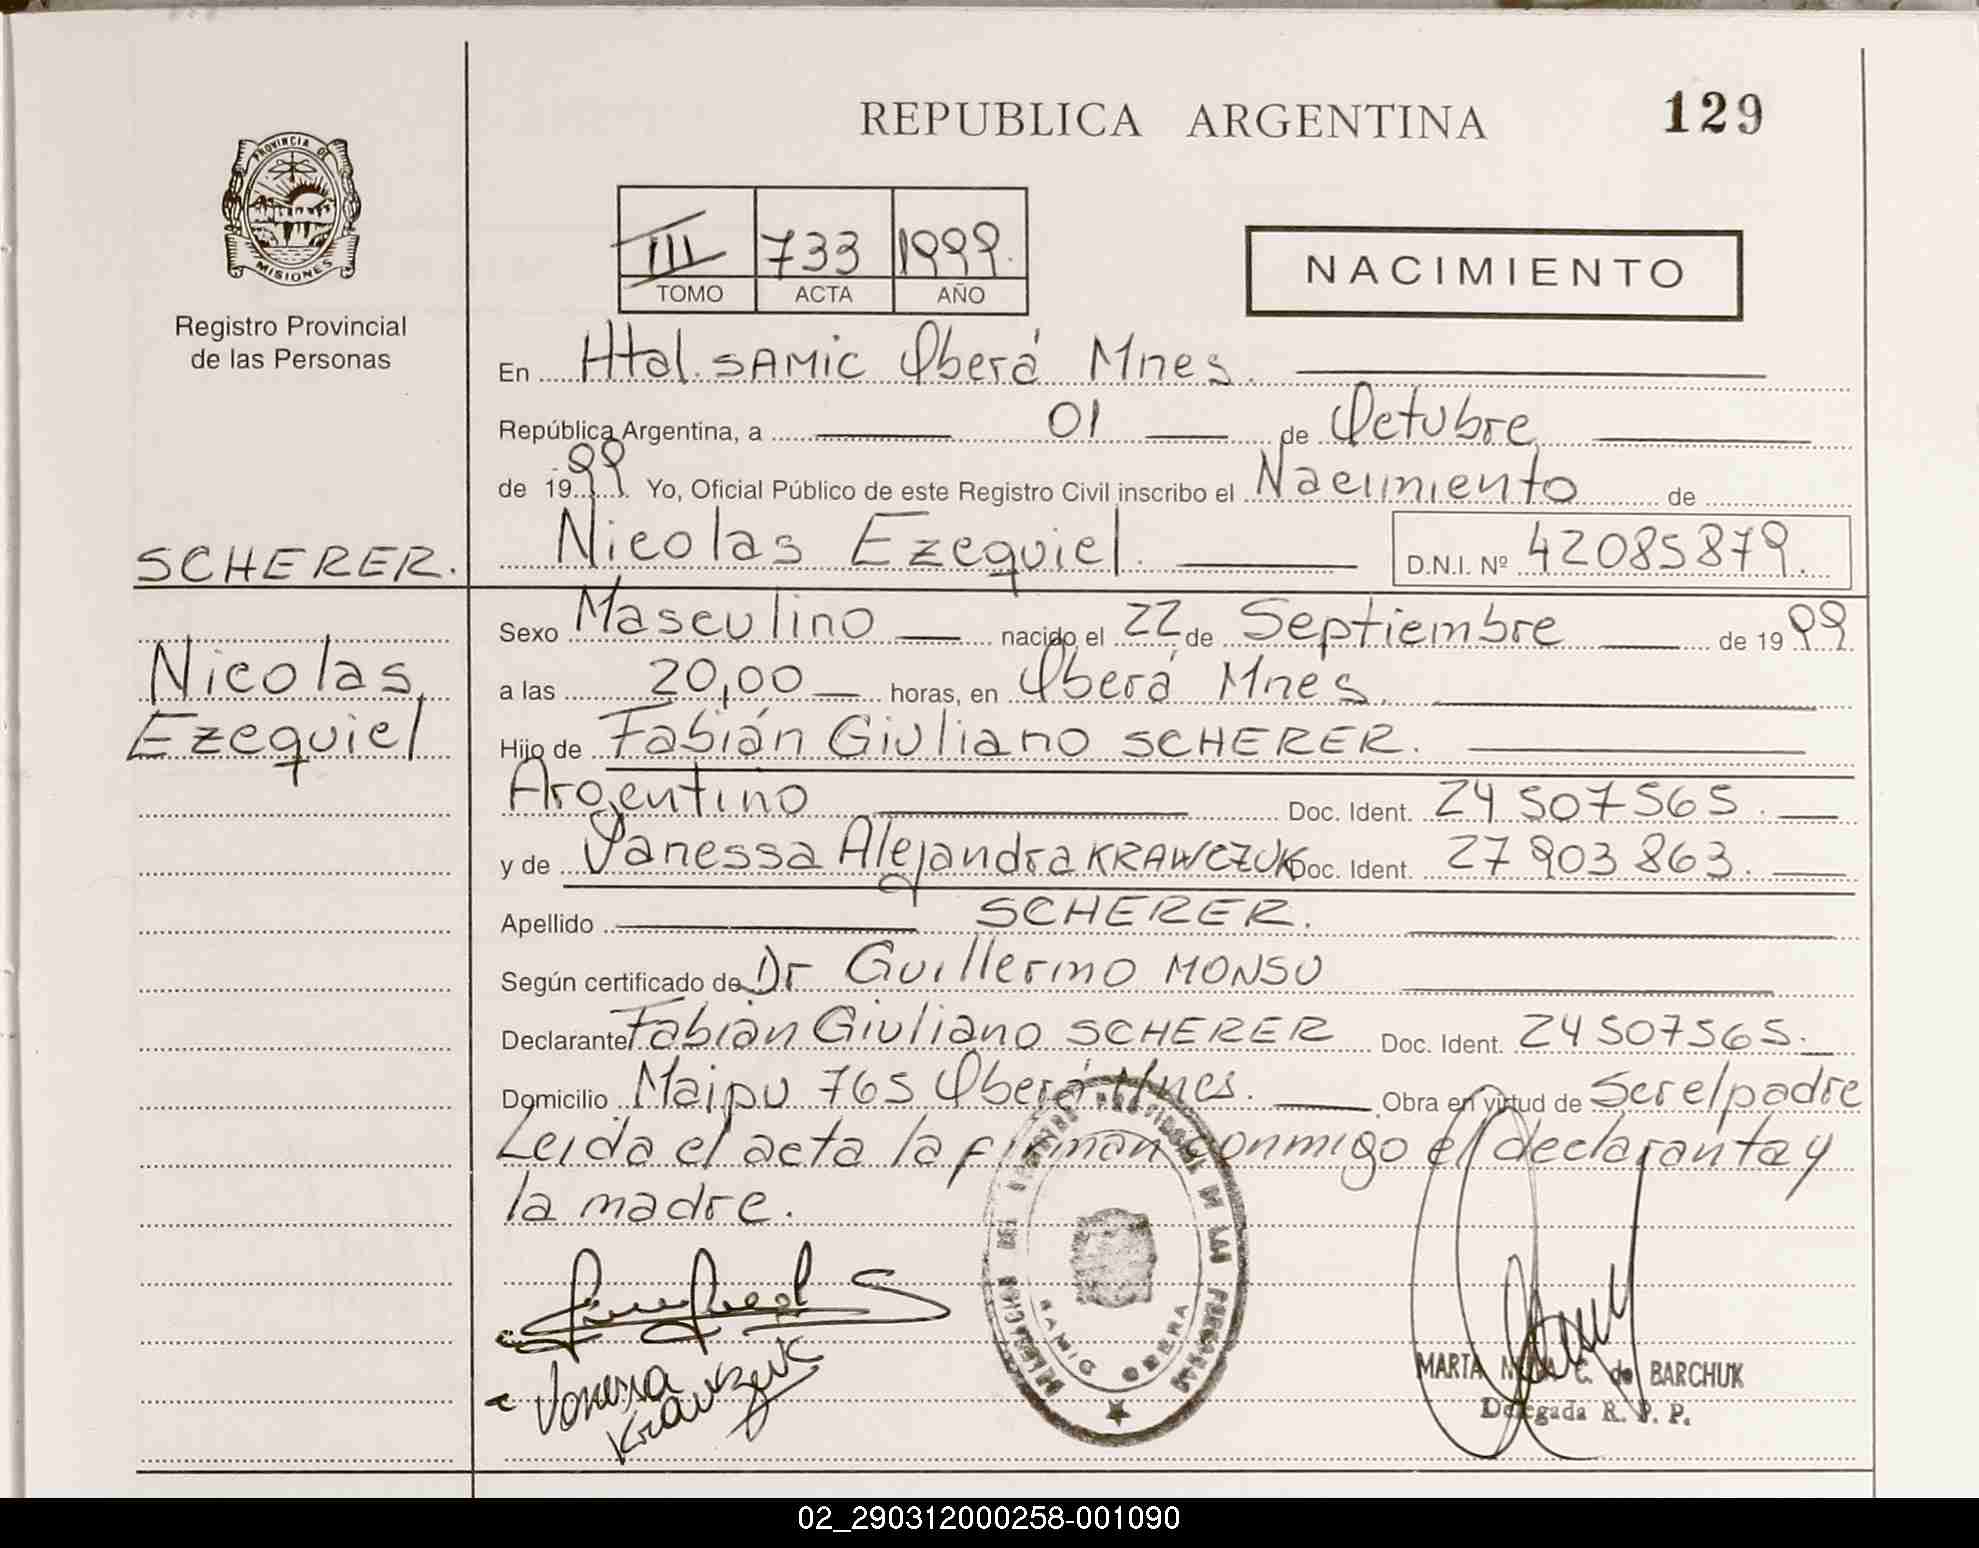 REPUBLICA ARGENTINA
129
PROVINCIA DE
MISIONES
Registro Provincial
de las Personas
III 733 1999.
TOMO ACTA AÑO
NACIMIENTO
En Htal. SAMIC Oberá Mnes.
República Argentina, a 01 de Octubre
de 1999 Yo, Oficial Público de este Registro Civil inscribo el Nacimiento de
Nicolas Ezequiel. D.N.I. Nº 42085879.
SCHERER.
Nicolas
Ezequiel
Sexo Masculino nacido el 22 de Septiembre de 1999
a las 20,00 horas, en Oberá Mnes.
Hijo de Fabián Giuliano SCHERER.
Argentino Doc. Ident. 24 507565.
y de Vanessa Alejandra KRAWCZUK Doc. Ident. 27 903 863.
Apellido SCHERER.
Según certificado de Dr Guillermo MONSU
Declarante Fabián Giuliano SCHERER Doc. Ident. 24 507565.
Domicilio Maipu 765 Oberá Mnes. Obra en virtud de Ser el padre
Leida el acta la firman conmigo el declaranta y
la madre.
Vanessa
Krawczuk
SAMIC OBERA
MARTA C. de BARCHUK
Delegada R. P. P.
02_290312000258-001090